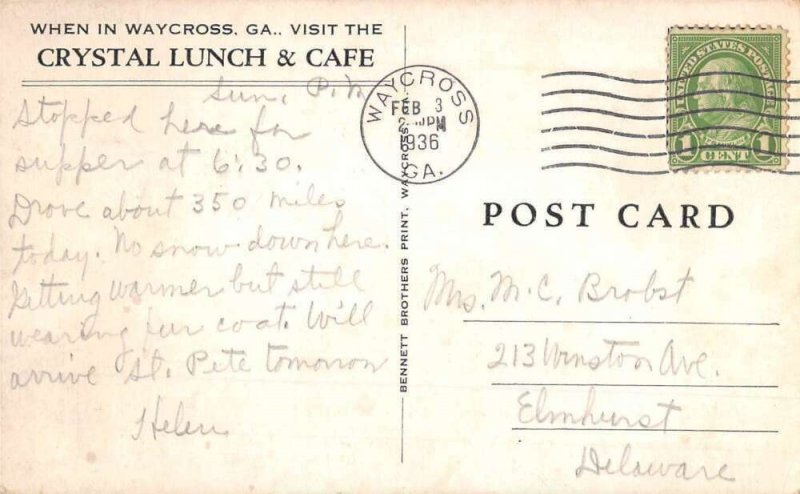 WHEN IN WAYCROSS, GA., VISIT THE
CRYSTAL LUNCH & CAFE
Sun. P.M.
Stopped here for
supper at 6:30.
Drove about 350 miles
today. No snow down here.
Getting warmer but still
wearing fur coat. Will
arrive St. Pete tomorrow
Helen
BENNETT BROTHERS PRINT, WAYCROSS,
WAYCROSS
FEB 3
PM
1936
GA.
UNITED STATES POSTAGE
1 CENT 1
POST CARD
Mrs. M. C. Brobst
213 Winston Ave.
Elmhurst
Delaware